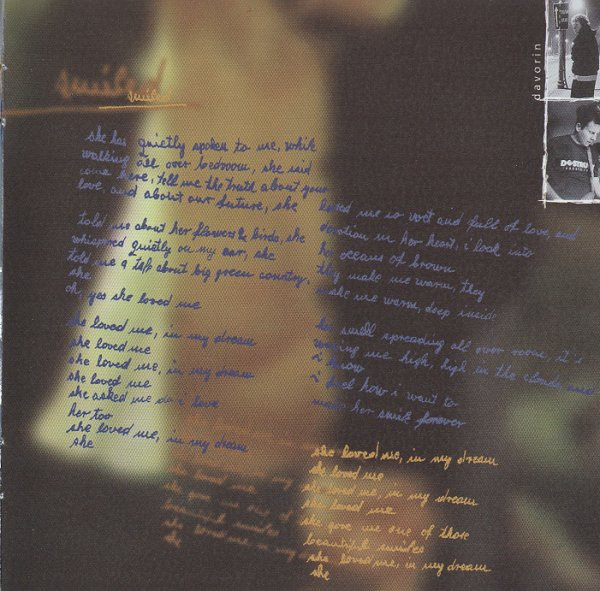 smiled
smiled
davorin
she has quietly spoken to me, while
walking all over bedroom, she said
come here, tell me the truth about your
love, and about our future, she
told me about her flowers & birds, she
whispered quietly on my ear, she
told me a about big green country,
she
oh, yes she loved me
she loved me, in my dream
she loved me
she loved me, in my dream
she loved me
she asked me do i love
her too
she loved me, in my dream
she
loved me so and full of love, and
devotion in her heart, i look into
her oceans of brown
they make me warm, they
make me warm, deep inside
her smell spreading all over room, it's
me high, high in the clouds and
i know
i feel how i want to
her smile forever
she loved me, in my dream
she loved me
she loved me, in my dream
she loved me
she gave me one of those
beautiful smiles
she loved me, in my dream
she
she loved me
she gave me one of
beautiful smiles
she loved me in my
she